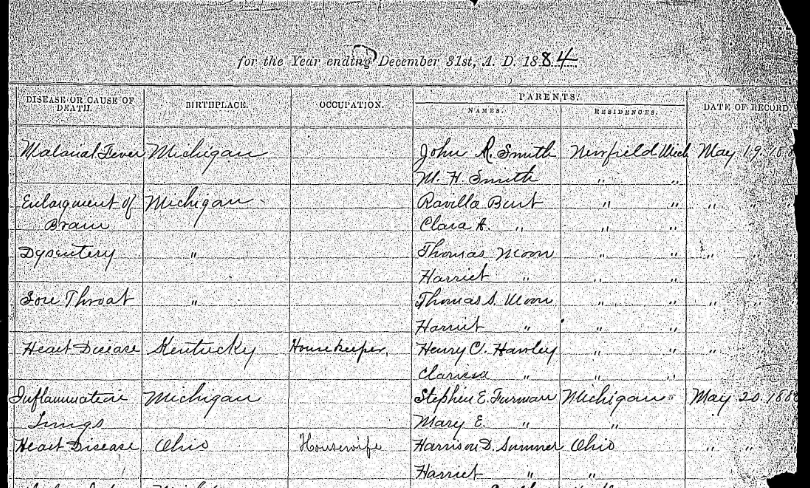 for the Year ending December 31st, A. D. 1884
DISEASE OR CAUSE OF DEATH. BIRTHPLACE. OCCUPATION. PARENTS. DATE OF RECORD
NAMES. RESIDENCES.
Malarial Fever Michigan John R. Smith Newfield Mich May 19
M. H. Smith " "
Enlargment of Michigan Ravilla Burt " " " "
Brain Clara A. " " "
Dysentery " Thomas Moon " " " "
Harriet " " "
Sore Throat " Thomas S. Moon " " " "
Harriet " " "
Heart Disease Kentucky Housekeeper, Henry C. Hawley " " " "
Clarissa " " "
Inflammation Michigan Stephen E. Furman Michigan " May 20
Lungs Mary E. " "
Heart Disease Ohio Housewife Harrison D. Sumner Ohio " "
Harriet " "